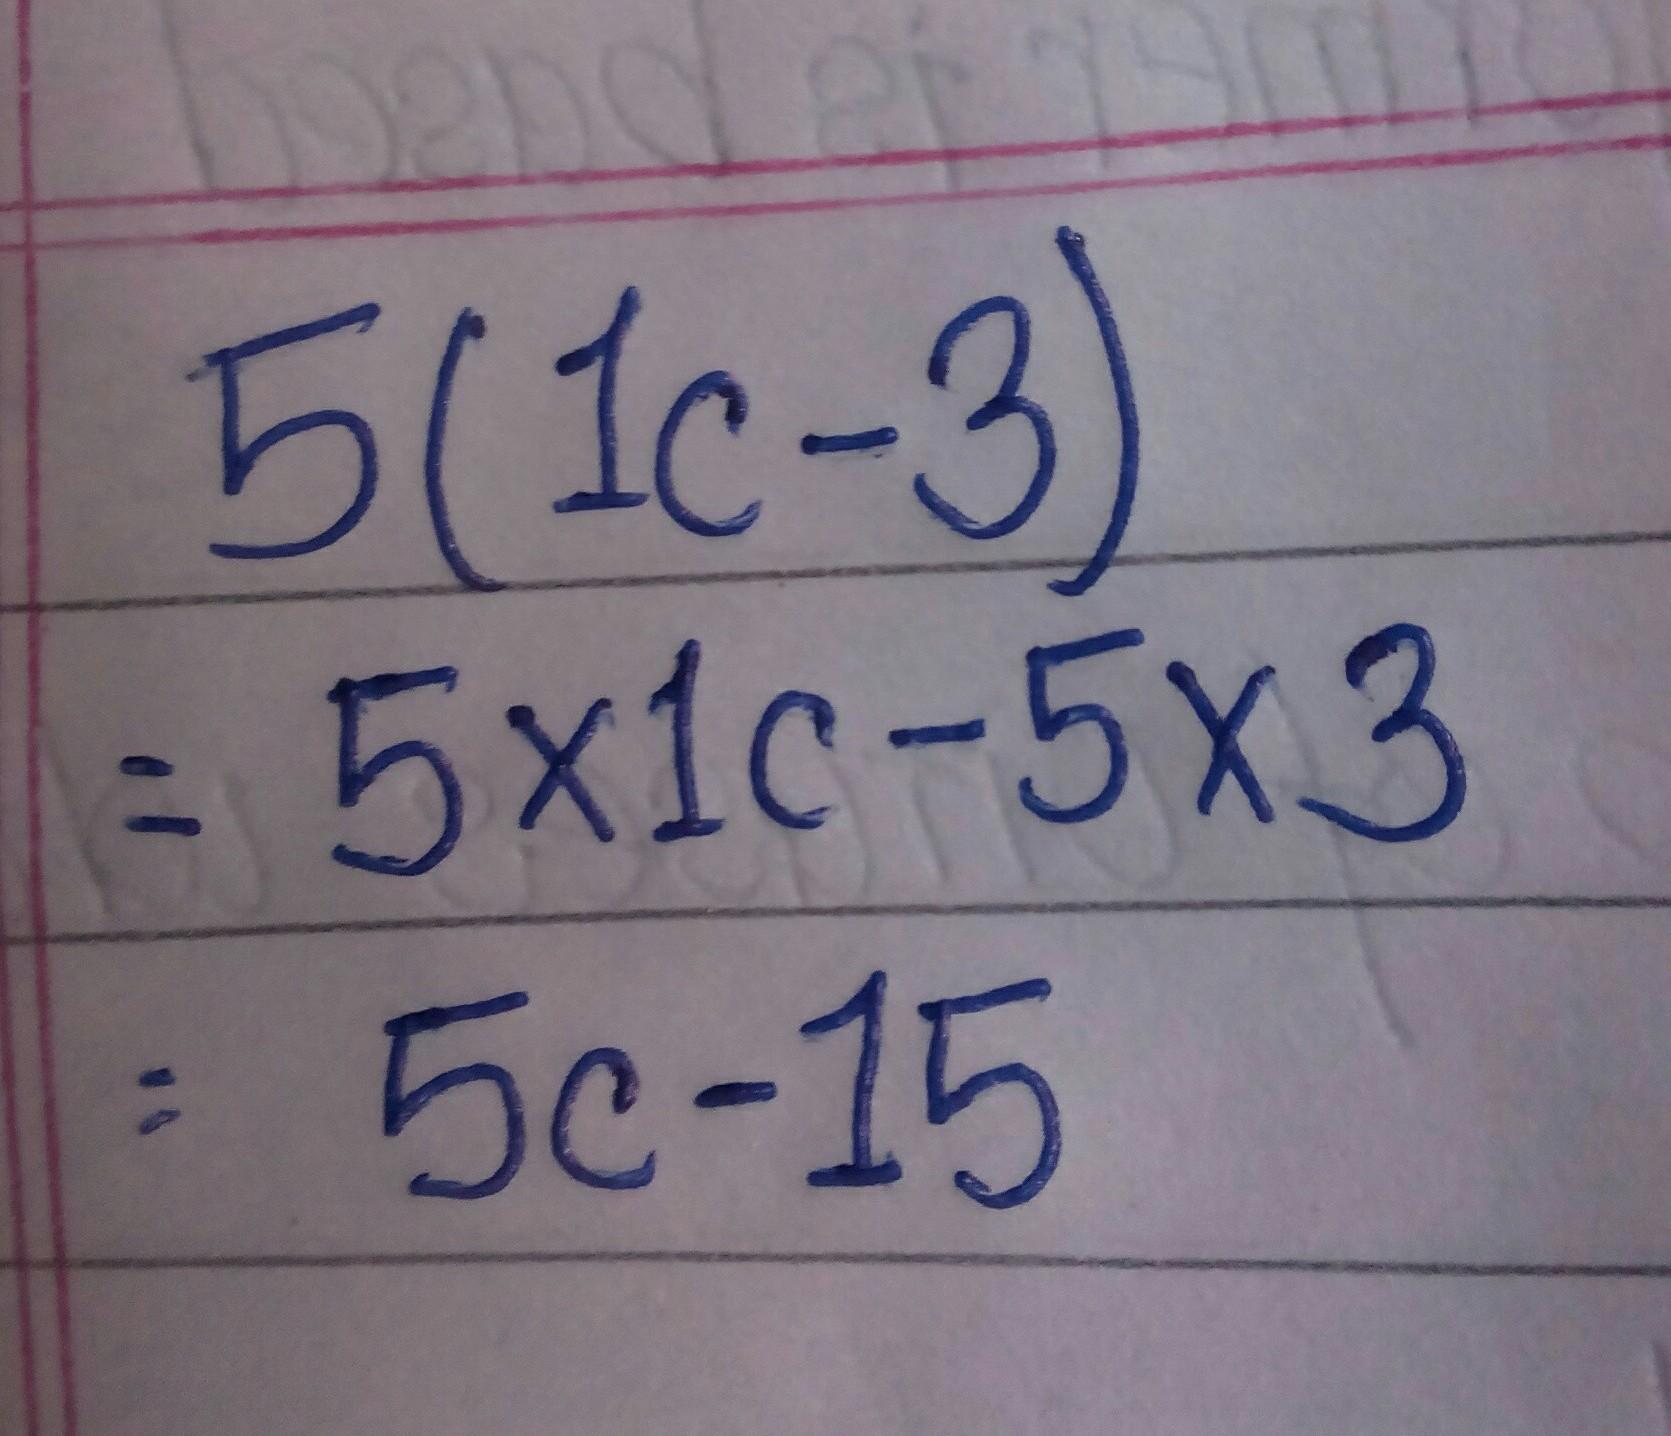 5(1c-3)
= 5x1c-5x3
= 5c-15